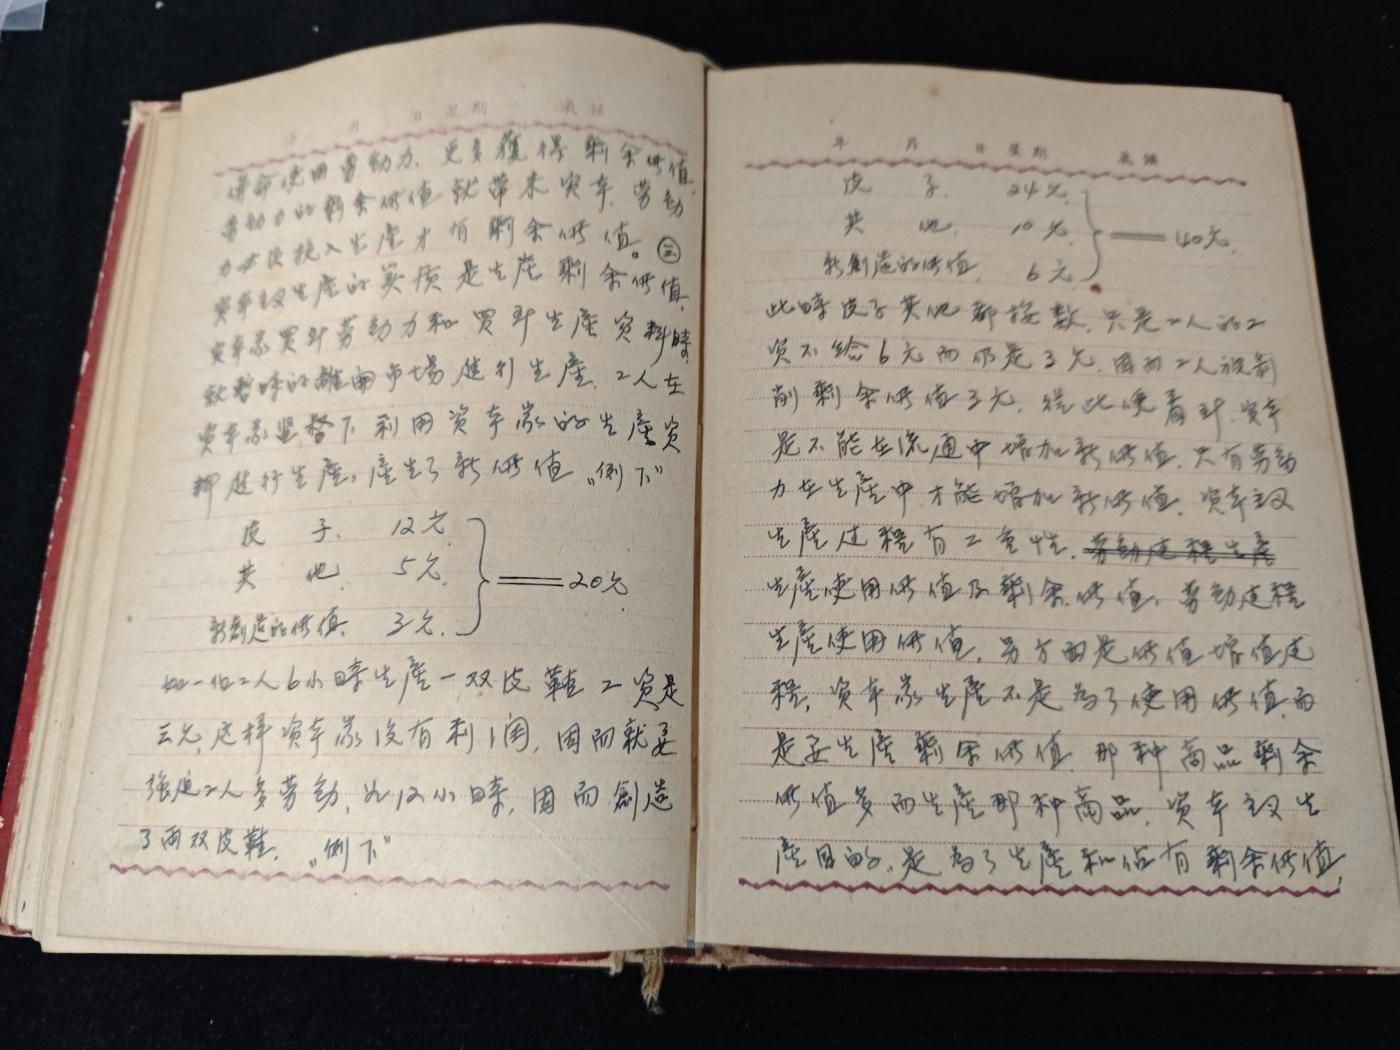 年 月 日 星期 气候
拼命使用劳动力、更多獲得剩余価值,
劳动力的剩余価值就带来资本,劳动
力投入生産才有剩余価值。㊁
资本主义生産的实质是生産剩余価值,
资本家買到劳动力和買到生産资料時,
就暂時的離開市場進行生産,工人在
资本家监督下利用资本家的生産资
料進行生産。産生了新価值“例下”
皮 子、 12元,
其 他, 5元, 20元
新創造的価值, 3元,
如一位工人6小時生産一双皮鞋工资是
三元,这样资本家没有利润,因而就要
强迫工人多劳动,如12小時,因而創造
了両双皮鞋,“例下”
年 月 日 星期 气候
皮 子 24元,
其 他, 10元, 40元,
新創造的価值, 6元,
此時皮子其他都按数,只是工人的工
资不给6元而仍是3元,因而工人被剥
削剩余価值3元,從此便看到,资本
是不能在流通中增加新価值,只有劳动
力在生産中才能增加新価值,资本主义
生産过程有二重性,劳动过程生産
生産使用価值及剩余価值,劳动过程
生産使用価值,另方面是価值增值过
程,资本家生産不是为了使用価值,而
是要生産剩余価值,那种商品剩余
価值多而生産那种商品,资本主义生
産目的,是为了生産和佔有剩余価值,